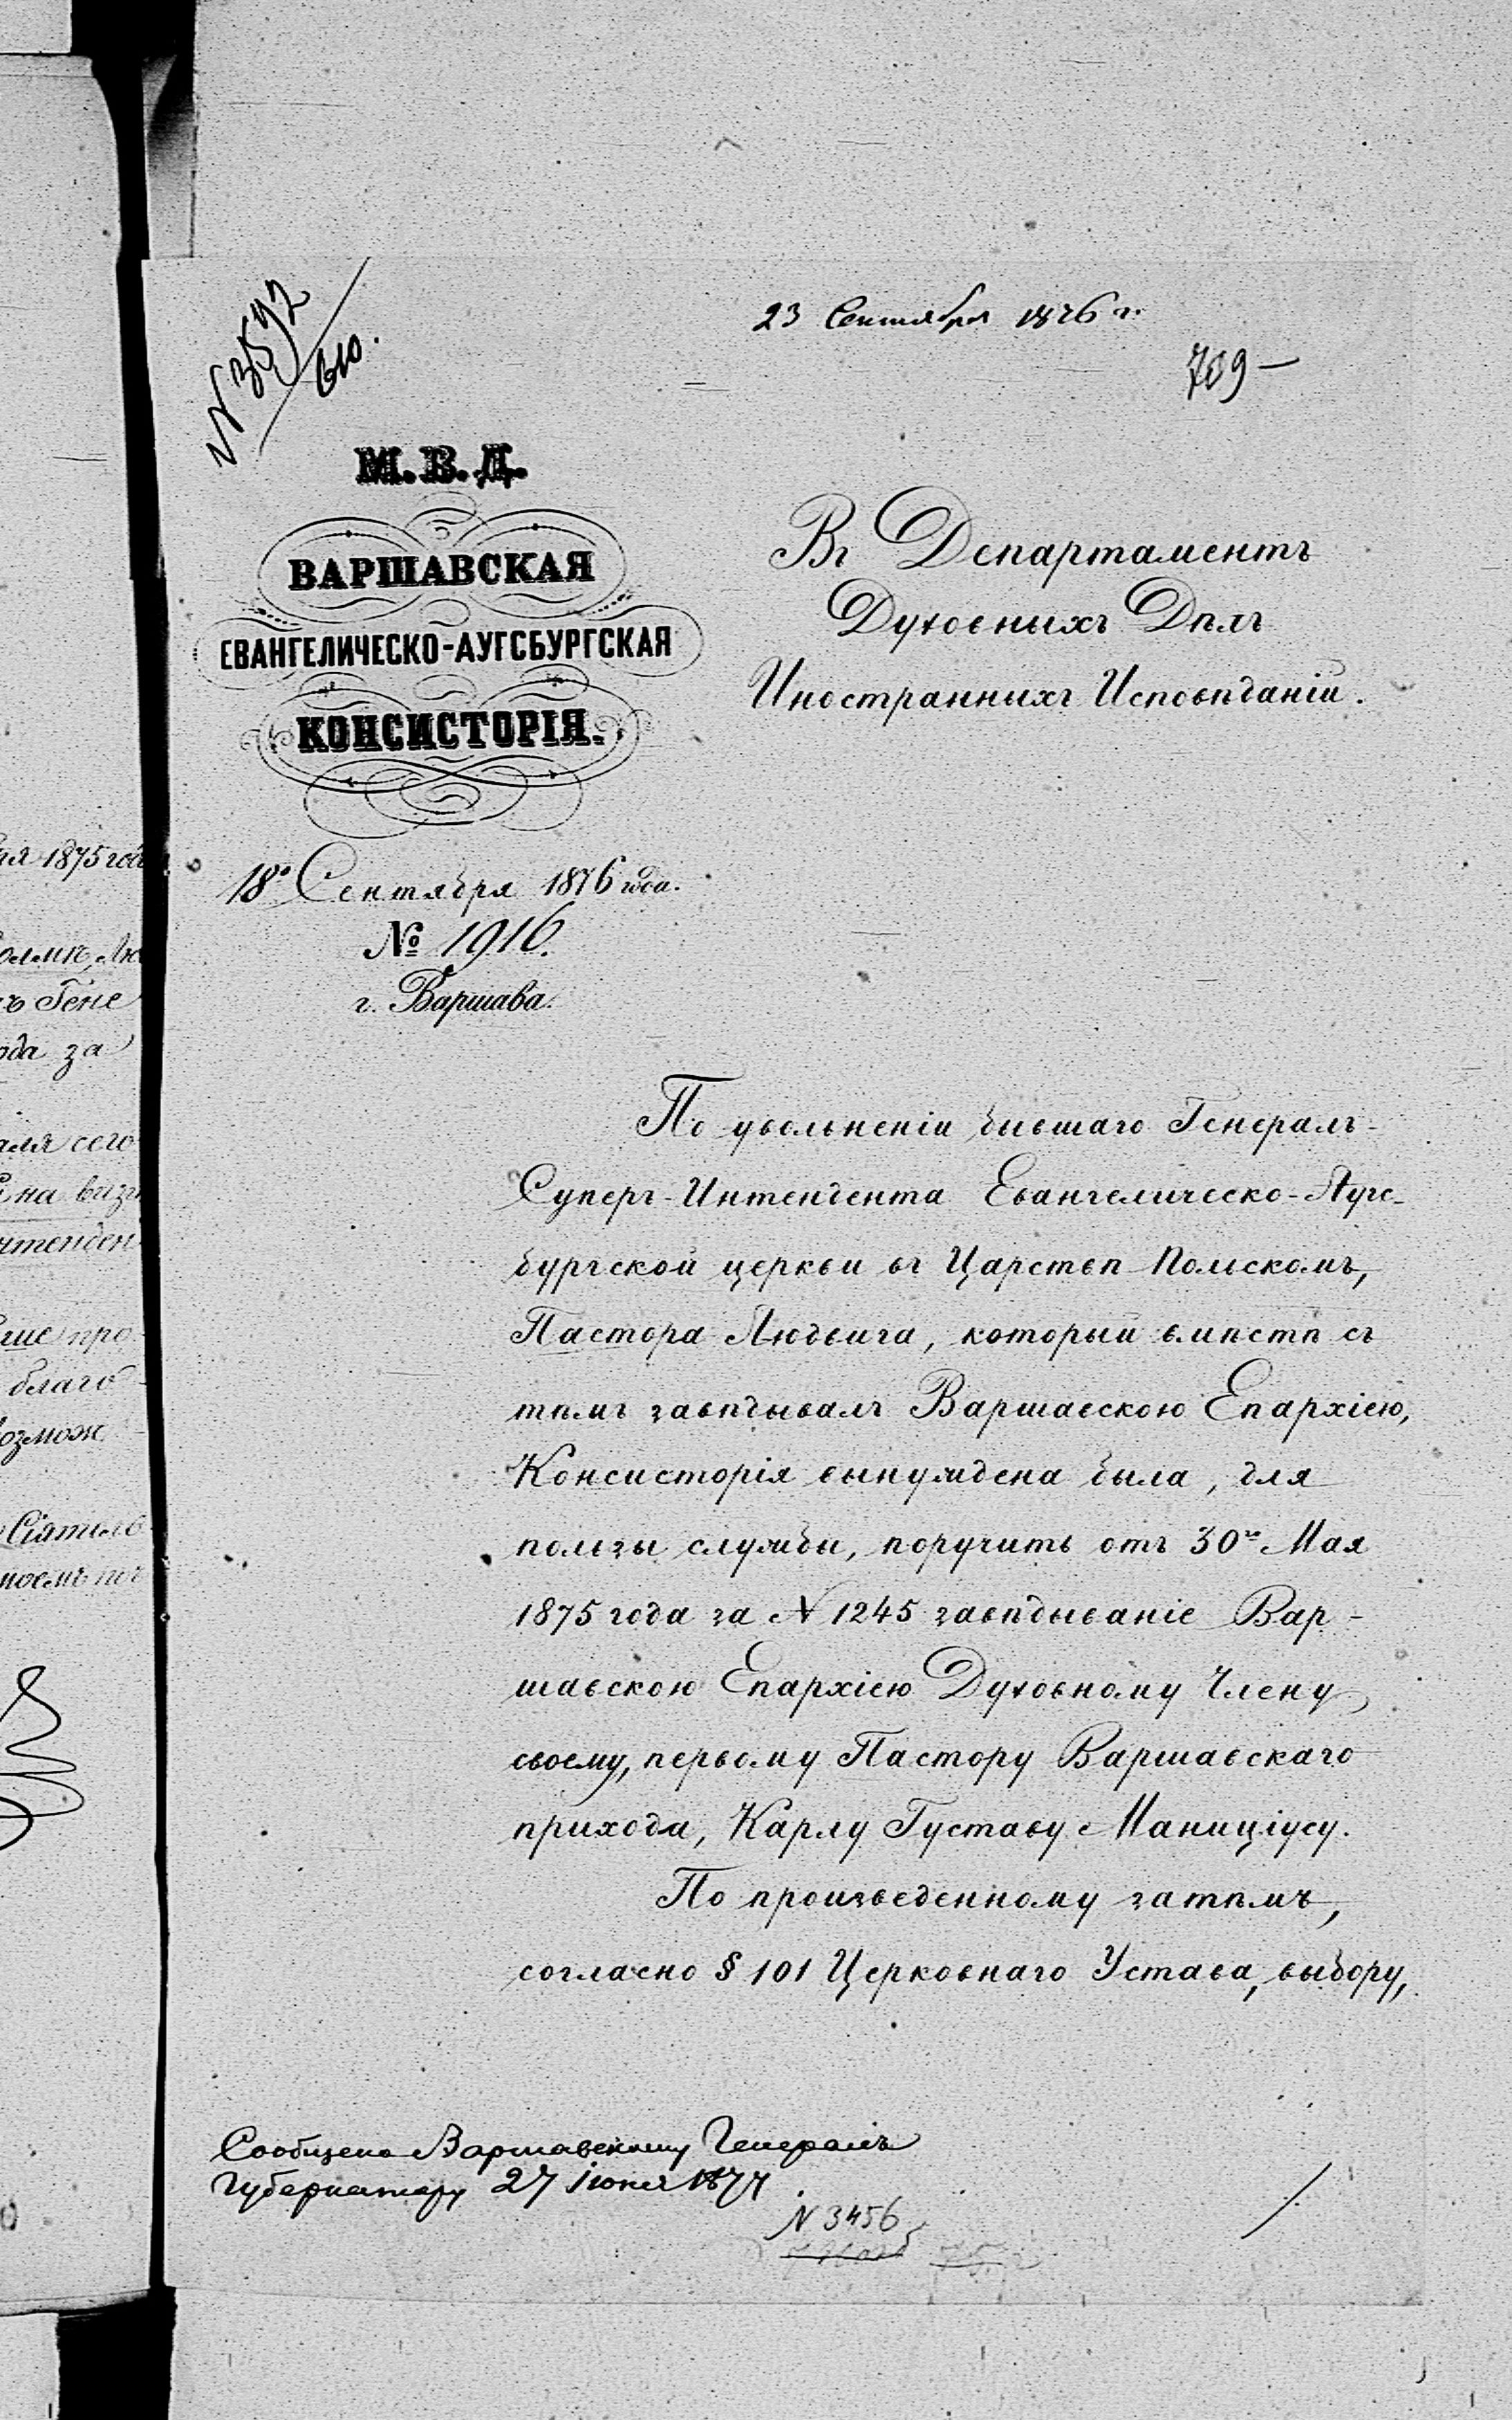 ая 1875 года
ъ Гене
ода за
аля сего
на визи
нтенден
ше про
благо-
озмож
Сіятель
моемъ по
№ 3592/610.
23 Сентября 1876 г.
709
М.В.Д.
ВАРШАВСКАЯ
ЕВАНГЕЛИЧЕСКО-АУГСБУРГСКАЯ
КОНСИСТОРІЯ.
18º Сентября 1876 года.
№ 1916.
г. Варшава.
Въ Департаментъ
Духовныхъ Дѣлъ
Иностранныхъ Исповѣданій.
По увольненіи бывшаго Генералъ-
Суперъ-Интендента Евангелическо-Аугс-
бургской церкви въ Царствѣ Польскомъ,
Пастора Людвига, который вмѣстѣ съ
тѣмъ завѣдывалъ Варшавскою Епархіею,
Консисторія вынуждена была, для
пользы службы, поручить отъ 30го Мая
1875 года за N 1245 завѣдываніе Вар-
шавскою Епархіею Духовному Члену
своему, первому Пастору Варшавскаго
прихода, Карлу Густаву Маниціусу.
По произведенному затѣмъ,
согласно § 101 Церковнаго Устава, выбору,
Сообщено Варшавскому Генералъ
Губернатору 27 Іюня 1877
N 3456